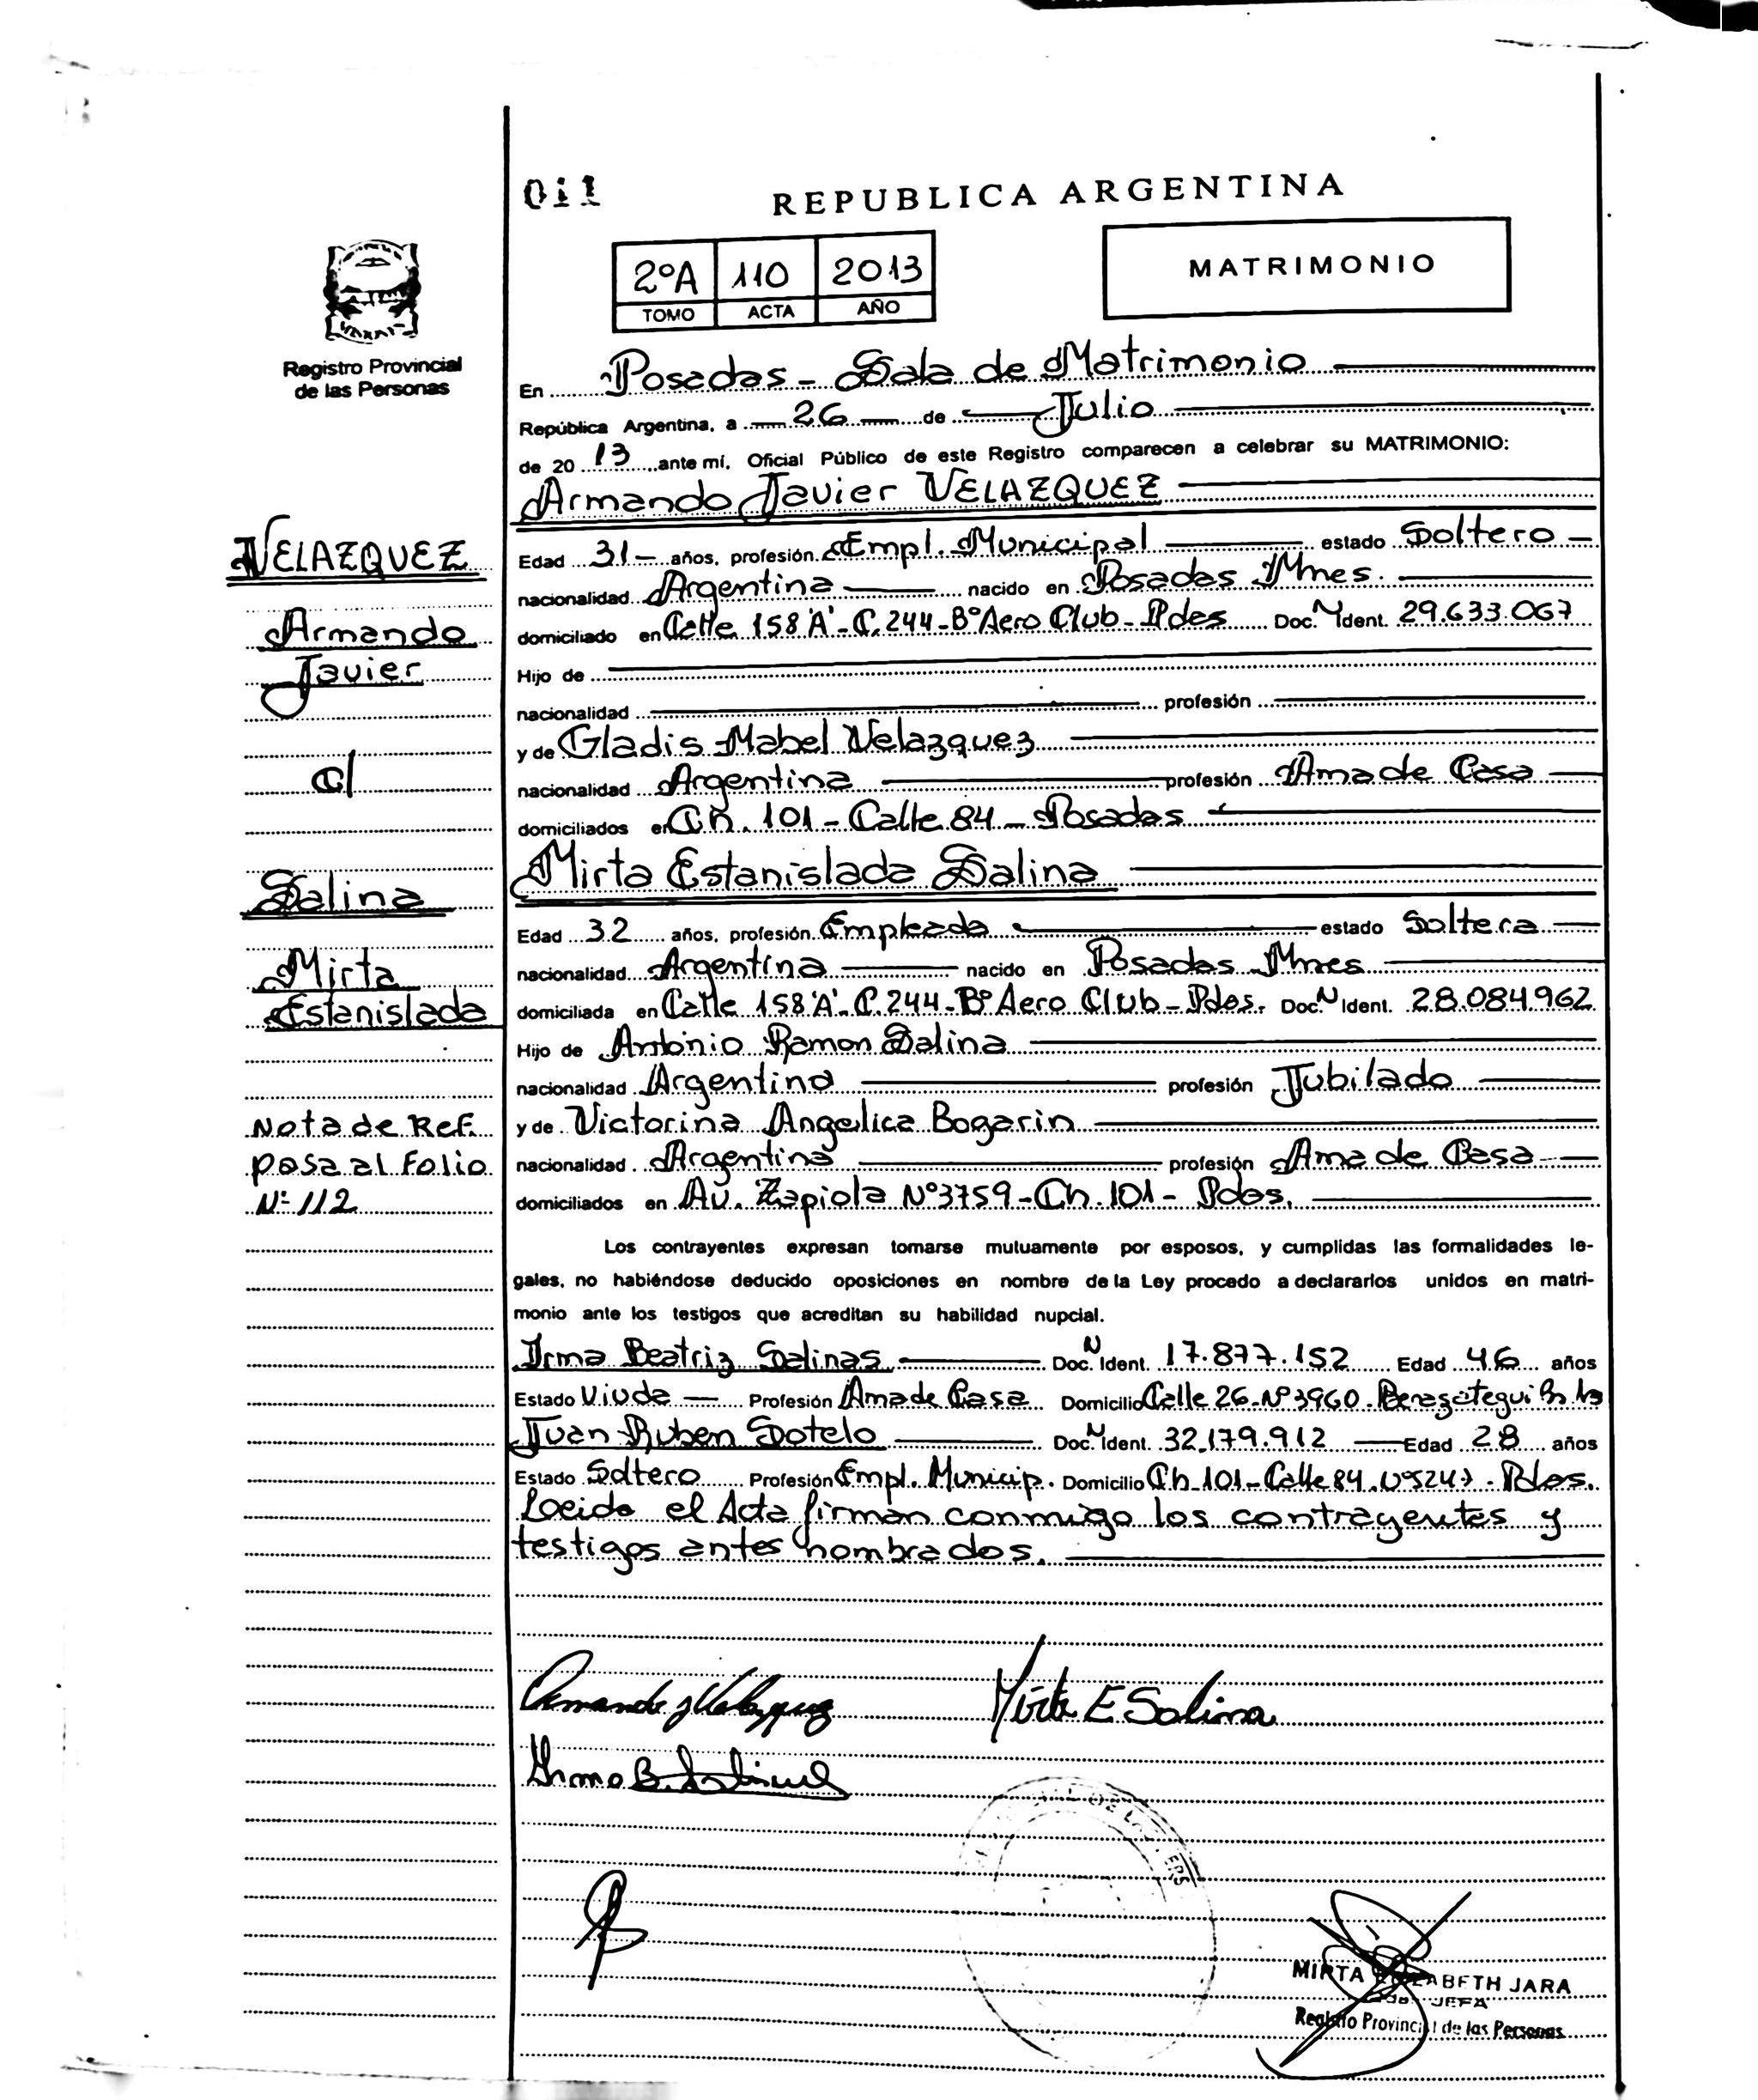 011
REPUBLICA ARGENTINA
2ºA 110 2013
TOMO ACTA AÑO
MATRIMONIO
Registro Provincial
de las Personas
En Posadas - Sala de Matrimonio
República Argentina, a 26 de Julio
de 2013 ante mí, Oficial Público de este Registro comparecen a celebrar su MATRIMONIO:
Armando Javier VELAZQUEZ
VELAZQUEZ
Armando
Javier
c/
Salina
Mirta
Estanislada
Nota de Ref.
pasa al Folio
Nº 112
Edad 31 años, profesión Empl. Municipal estado Soltero
nacionalidad Argentina nacido en Posadas Mnes.
domiciliado en Calle 158 'A' - C. 244 - Bº Aero Club - Pdes Doc. N Ident. 29.633.067
Hijo de
nacionalidad profesión
y de Gladis Mabel Velazquez
nacionalidad Argentina profesión Ama de Casa
domiciliados en Ch. 101 - Calle 84 - Posadas
Mirta Estanislada Salina
Edad 32 años, profesión Empleada estado Soltera
nacionalidad Argentina nacido en Posadas Mnes
domiciliada en Calle 158 'A' - C. 244 - Bº Aero Club - Pdes. Doc. N Ident. 28.084.962
Hijo de Antonio Ramon Salina
nacionalidad Argentino profesión Jubilado
y de Victorina Angelica Bogarin
nacionalidad Argentina profesión Ama de Casa
domiciliados en Av. Zapiola Nº 3759 - Ch. 101 - Pdes.
Los contrayentes expresan tomarse mutuamente por esposos, y cumplidas las formalidades le-
gales, no habiéndose deducido oposiciones en nombre de la Ley procedo a declararlos unidos en matri-
monio ante los testigos que acreditan su habilidad nupcial.
Irma Beatriz Salinas Doc. N Ident. 17.877.152 Edad 46 años
Estado Viuda Profesión Ama de Casa Domicilio Calle 26 - Nº 3960 - Berazategui
Juan Ruben Sotelo Doc. N Ident. 32.179.912 Edad 28 años
Estado Soltero Profesión Empl. Municip. Domicilio Ch. 101 - Calle 84 Nº 5247 - Pdes.
Leida el Acta firman conmigo los contrayentes y
testigos antes nombrados.
Armando J Velazquez
Mirta E Salina
Irma B. Salinas
MIRTA ELIZABETH JARA
JEFA
Registro Provincial de las Personas